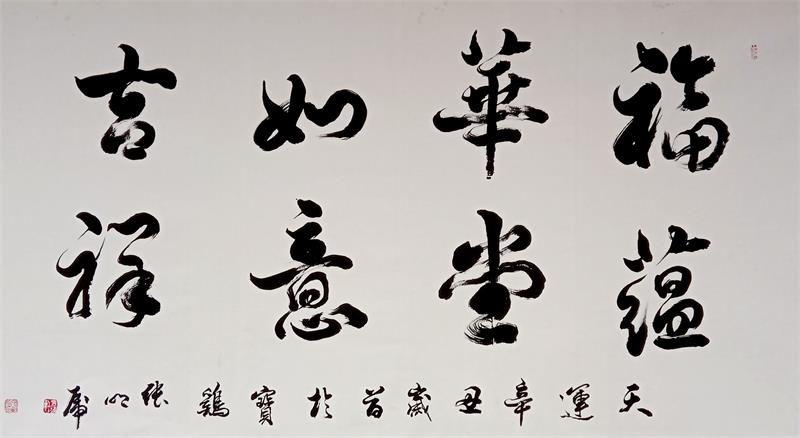 福蕴
華堂
如意
吉祥
天運辛丑歲首於寶鷄張明虎